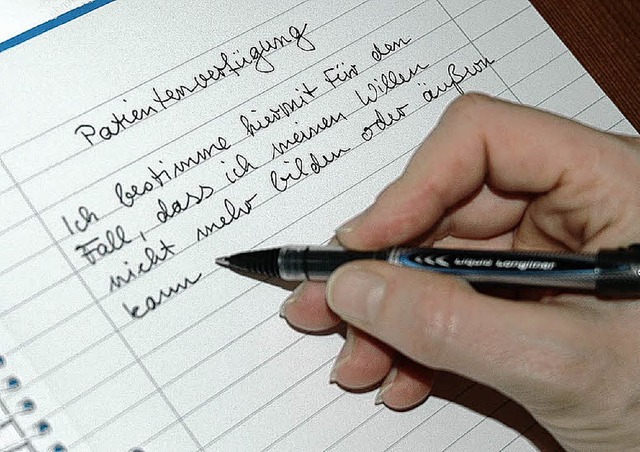 Patientenverfügung
Ich bestimme hiermit für den
Fall, dass ich meinen Willen
nicht mehr bilden oder äußern
kann
Liquid Longliner